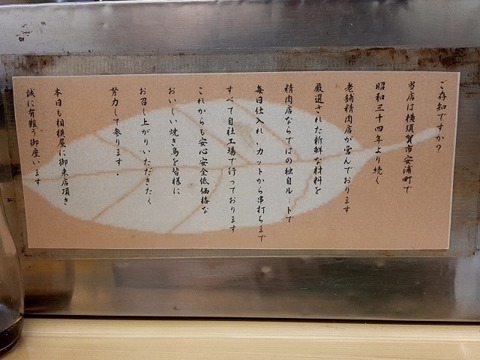 ご存知ですか?
当店は横須賀市安浦町で
昭和三十四年より続く
老舗精肉店が営んでおります
厳選された新鮮な材料を
精肉店ならではの独自ルートで
毎日仕入れ・カットから串打ちまで
すべて自社工場で行っております
これからも安心安全低価格な
おいしい焼き鳥を皆様に
お召し上がりいただきたく
努力して参ります。
本日も相模屋に御来店頂き
誠に有難う御座います